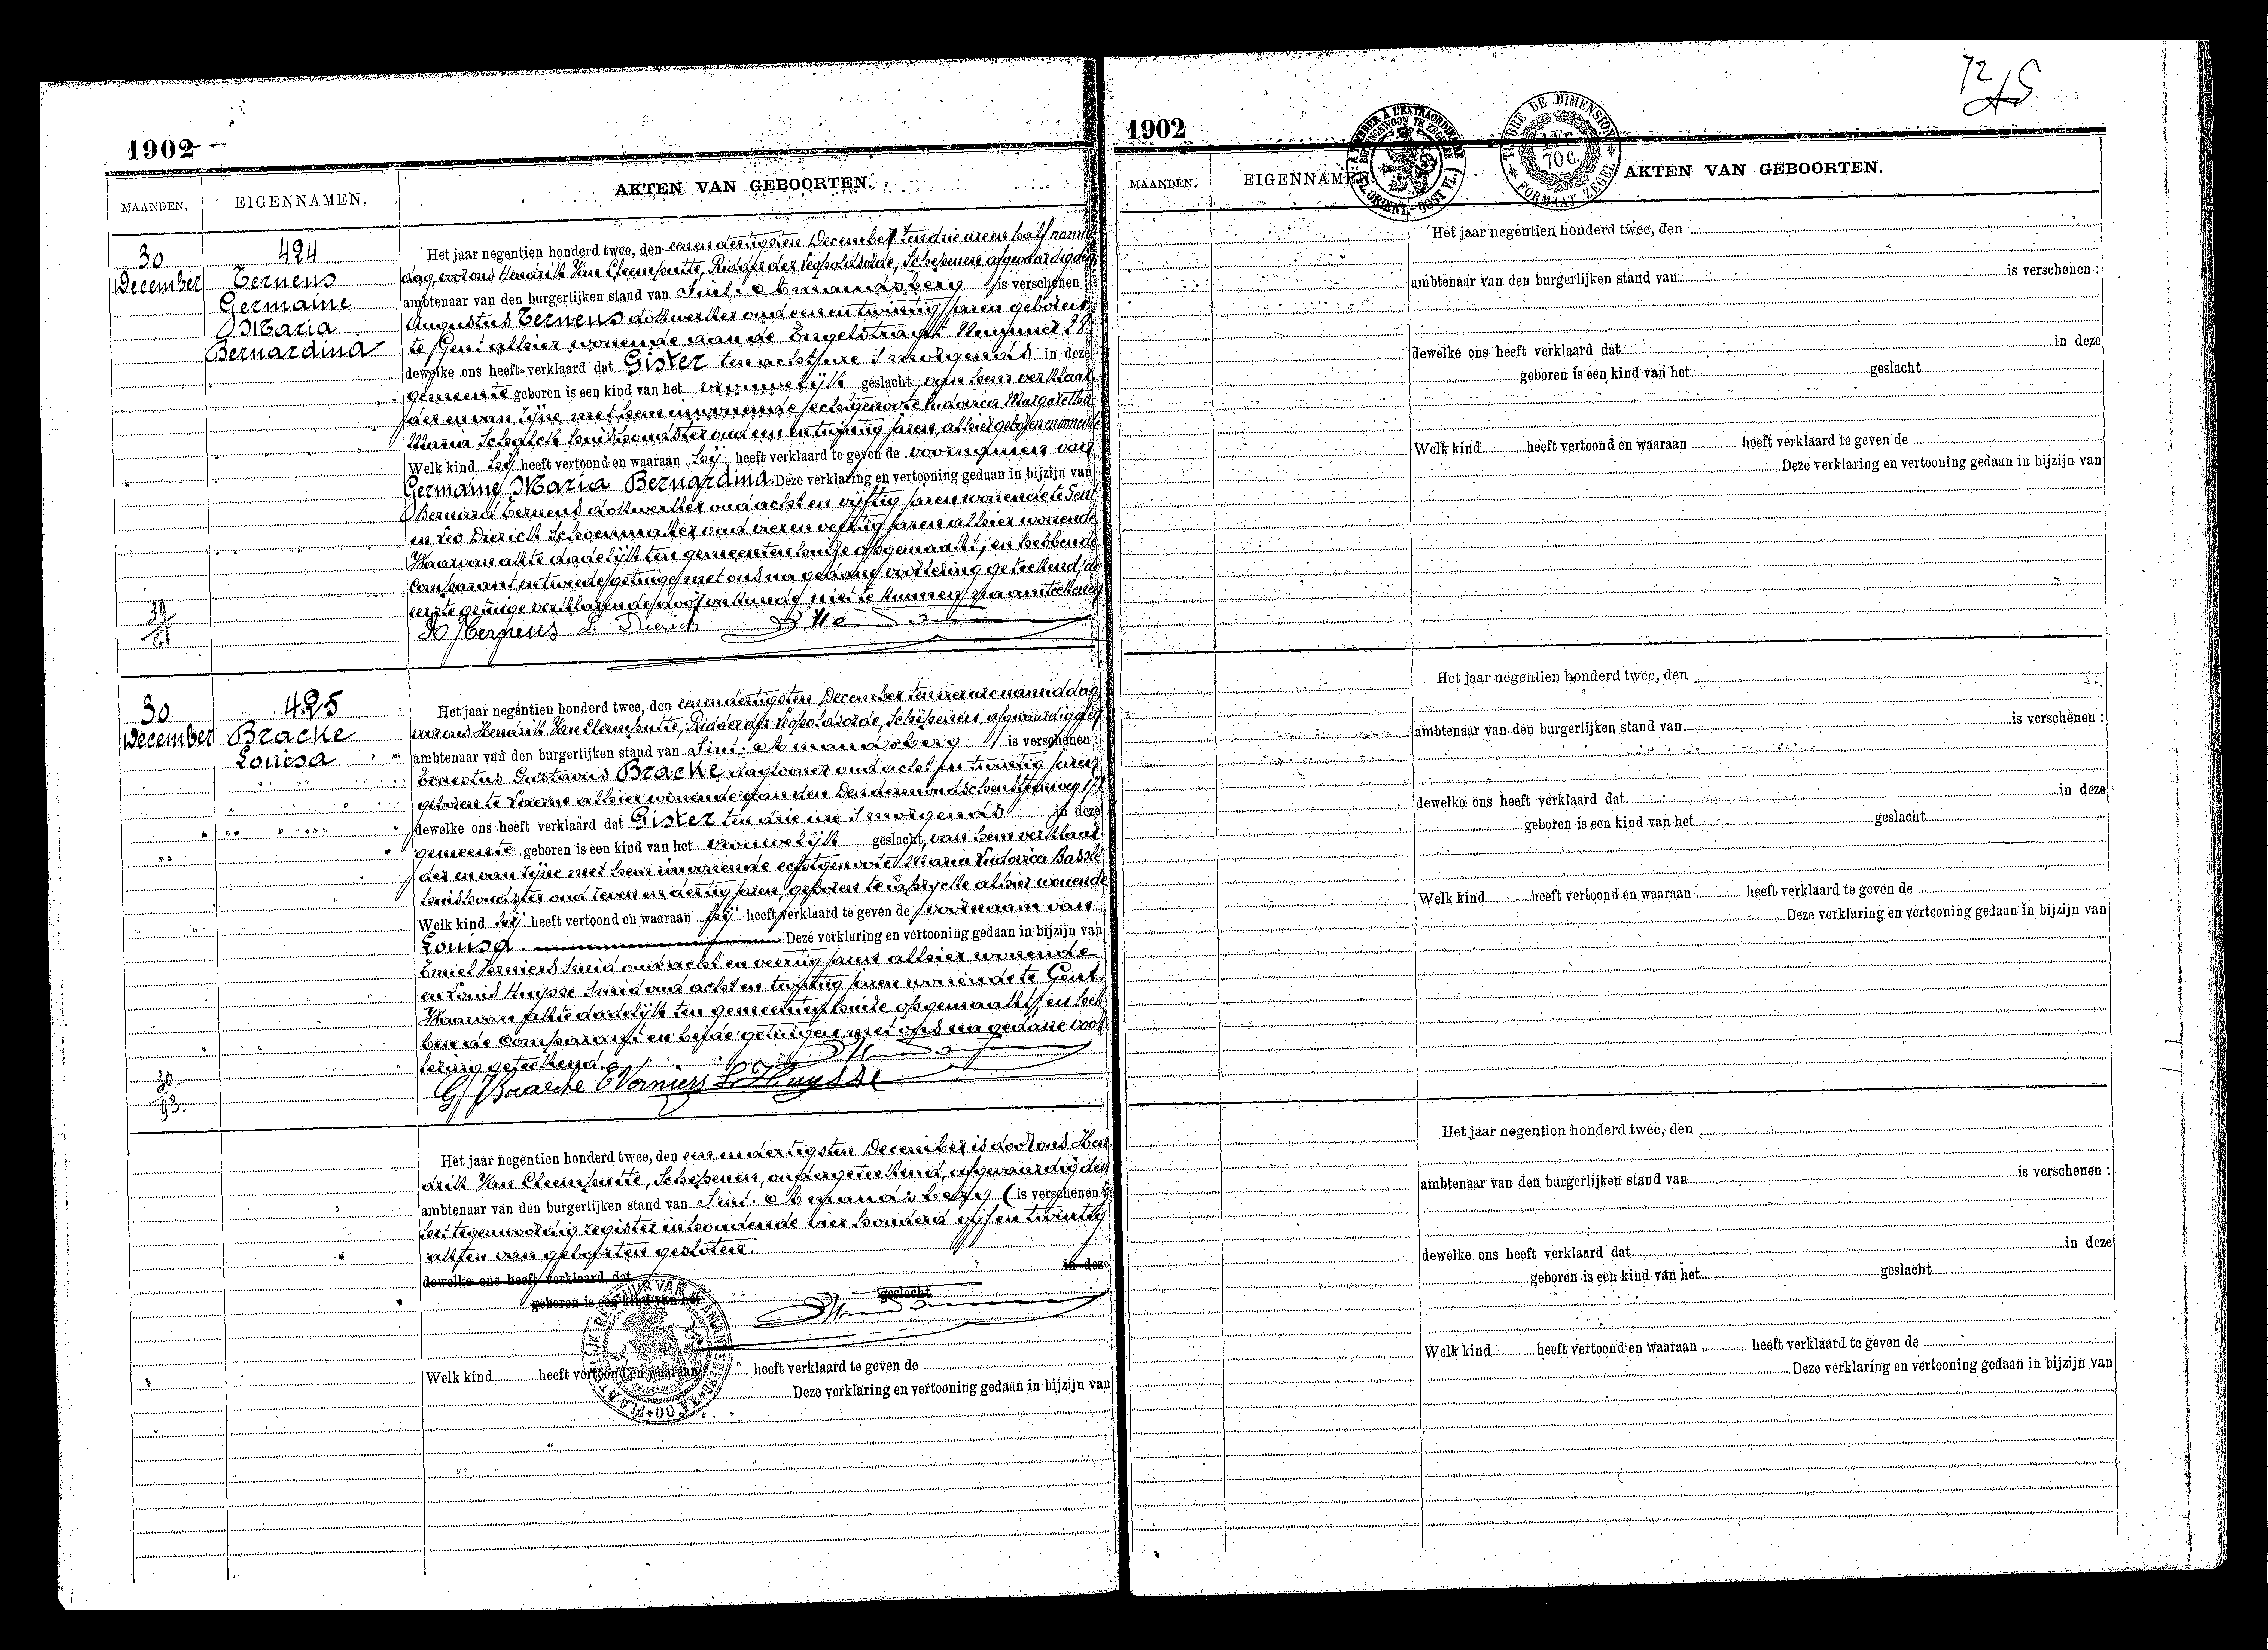 1902
MAANDEN. EIGENNAMEN. AKTEN VAN GEBOORTEN.
30 December
424
Ternens
Germaine
Maria
Bernardina
Het jaar negentien honderd twee, den eenendertigsten December ten drie ure en half namid
dag, voor ons Hendrik Van Cleemputte, Ridder der Leopoldsorde, Schepenen afgevaardigden
ambtenaar van den burgerlijken stand van Sint-Amandsberg is verschenen :
Augustus Ternens dokwerker oud eenen twintig jaren geboren
te Gent alhier wonende aan de Engelstraat Nummer 28
dewelke ons heeft verklaard dat Gister ten acht ure 's morgends in deze
gemeente geboren is een kind van het vrouwelijk geslacht, van hem verklaar
der en van zijne met hem inwonende echtgenoote Ludovica Margaretha
Maria Schalck huishoudster oud een en twintig jaren, alhier geboren en wonende
Welk kind hij heeft vertoond en waaraan hij heeft verklaard te geven de voornamen van
Germaine Maria Bernardina. Deze verklaring en vertooning gedaan in bijzijn van
Bernard Ternens dokwerker oud acht en vijftig jaren wonende te Gent
en Leo Dierick Schoenmaker oud vier en veertig jaren alhier wonende
Waarvan akte dadelijk ten gemeentenhuize opgemaakt, en hebbende
Comparant en tweede getuige met ons na gedane voorlezing geteekend, de
eerste getuige verklarende door onkunde niet te kunnen naamteekenen
A Ternens L Dierick
30 December
425
Bracke
Louisa
Het jaar negentien honderd twee, den eenendertigsten December ten vier ure namiddag
voor ons Hendrik Van Cleemputte, Ridder der Leopoldsorde, Schepenen, afgevaardigden
ambtenaar van den burgerlijken stand van Sint-Amandsberg is verschenen :
Ernestus Gustavus Bracke dagloner oud acht en twintig jaren
geboren te alhier wonende aan den Dendermondschensteenweg 172
dewelke ons heeft verklaard dat Gister ten drie ure 's morgends in deze
gemeente geboren is een kind van het vrouwelijk geslacht, van hem verklaar
der en van zijne met hem inwonende echtgenoote Maria Ludovica
huishoudster oud zeven en dertig jaren, geboren te alhier wonende
Welk kind hij heeft vertoond en waaraan hij heeft verklaard te geven de voornaam van
Louisa Deze verklaring en vertooning gedaan in bijzijn van
Emiel Verniers Smid oud acht en veertig jaren alhier wonende
en Louis Huysse Smid oud acht en twintig jaren wonende te Gent.
Waarvan akte dadelijk ten gemeentenhuize opgemaakt, en heb
bende Comparant en beide getuigen met ons na gedane voor
lezing geteekend.
G Bracke E Verniers L Huysse
Het jaar negentien honderd twee, den een endertigsten December is door ons Hen
drik Van Cleemputte, Schepenen, ondergeteekend, afgevaardigden
ambtenaar van den burgerlijken stand van Sint-Amandsberg is verschenen
het tegenwoordig register inhoudende vier honderd vijf en twintig
akten van geboorten gesloten.
dewelke ons heeft verklaard dat in deze
geboren is een kind van het geslacht
Welk kind heeft vertoond en waaraan heeft verklaard te geven de
Deze verklaring en vertooning gedaan in bijzijn van
1902
TIMBRE DE DIMENSION
1 Fr. 70 C.
FORMAAT ZEGEL
MAANDEN. EIGENNAMEN. AKTEN VAN GEBOORTEN.
Het jaar negentien honderd twee, den
ambtenaar van den burgerlijken stand van is verschenen :
dewelke ons heeft verklaard dat in deze
geboren is een kind van het geslacht
Welk kind heeft vertoond en waaraan heeft verklaard te geven de
Deze verklaring en vertooning gedaan in bijzijn van
Het jaar negentien honderd twee, den
ambtenaar van den burgerlijken stand van is verschenen :
dewelke ons heeft verklaard dat in deze
geboren is een kind van het geslacht
Welk kind heeft vertoond en waaraan heeft verklaard te geven de
Deze verklaring en vertooning gedaan in bijzijn van
Het jaar negentien honderd twee, den
ambtenaar van den burgerlijken stand van is verschenen :
dewelke ons heeft verklaard dat in deze
geboren is een kind van het geslacht
Welk kind heeft vertoond en waaraan heeft verklaard te geven de
Deze verklaring en vertooning gedaan in bijzijn van